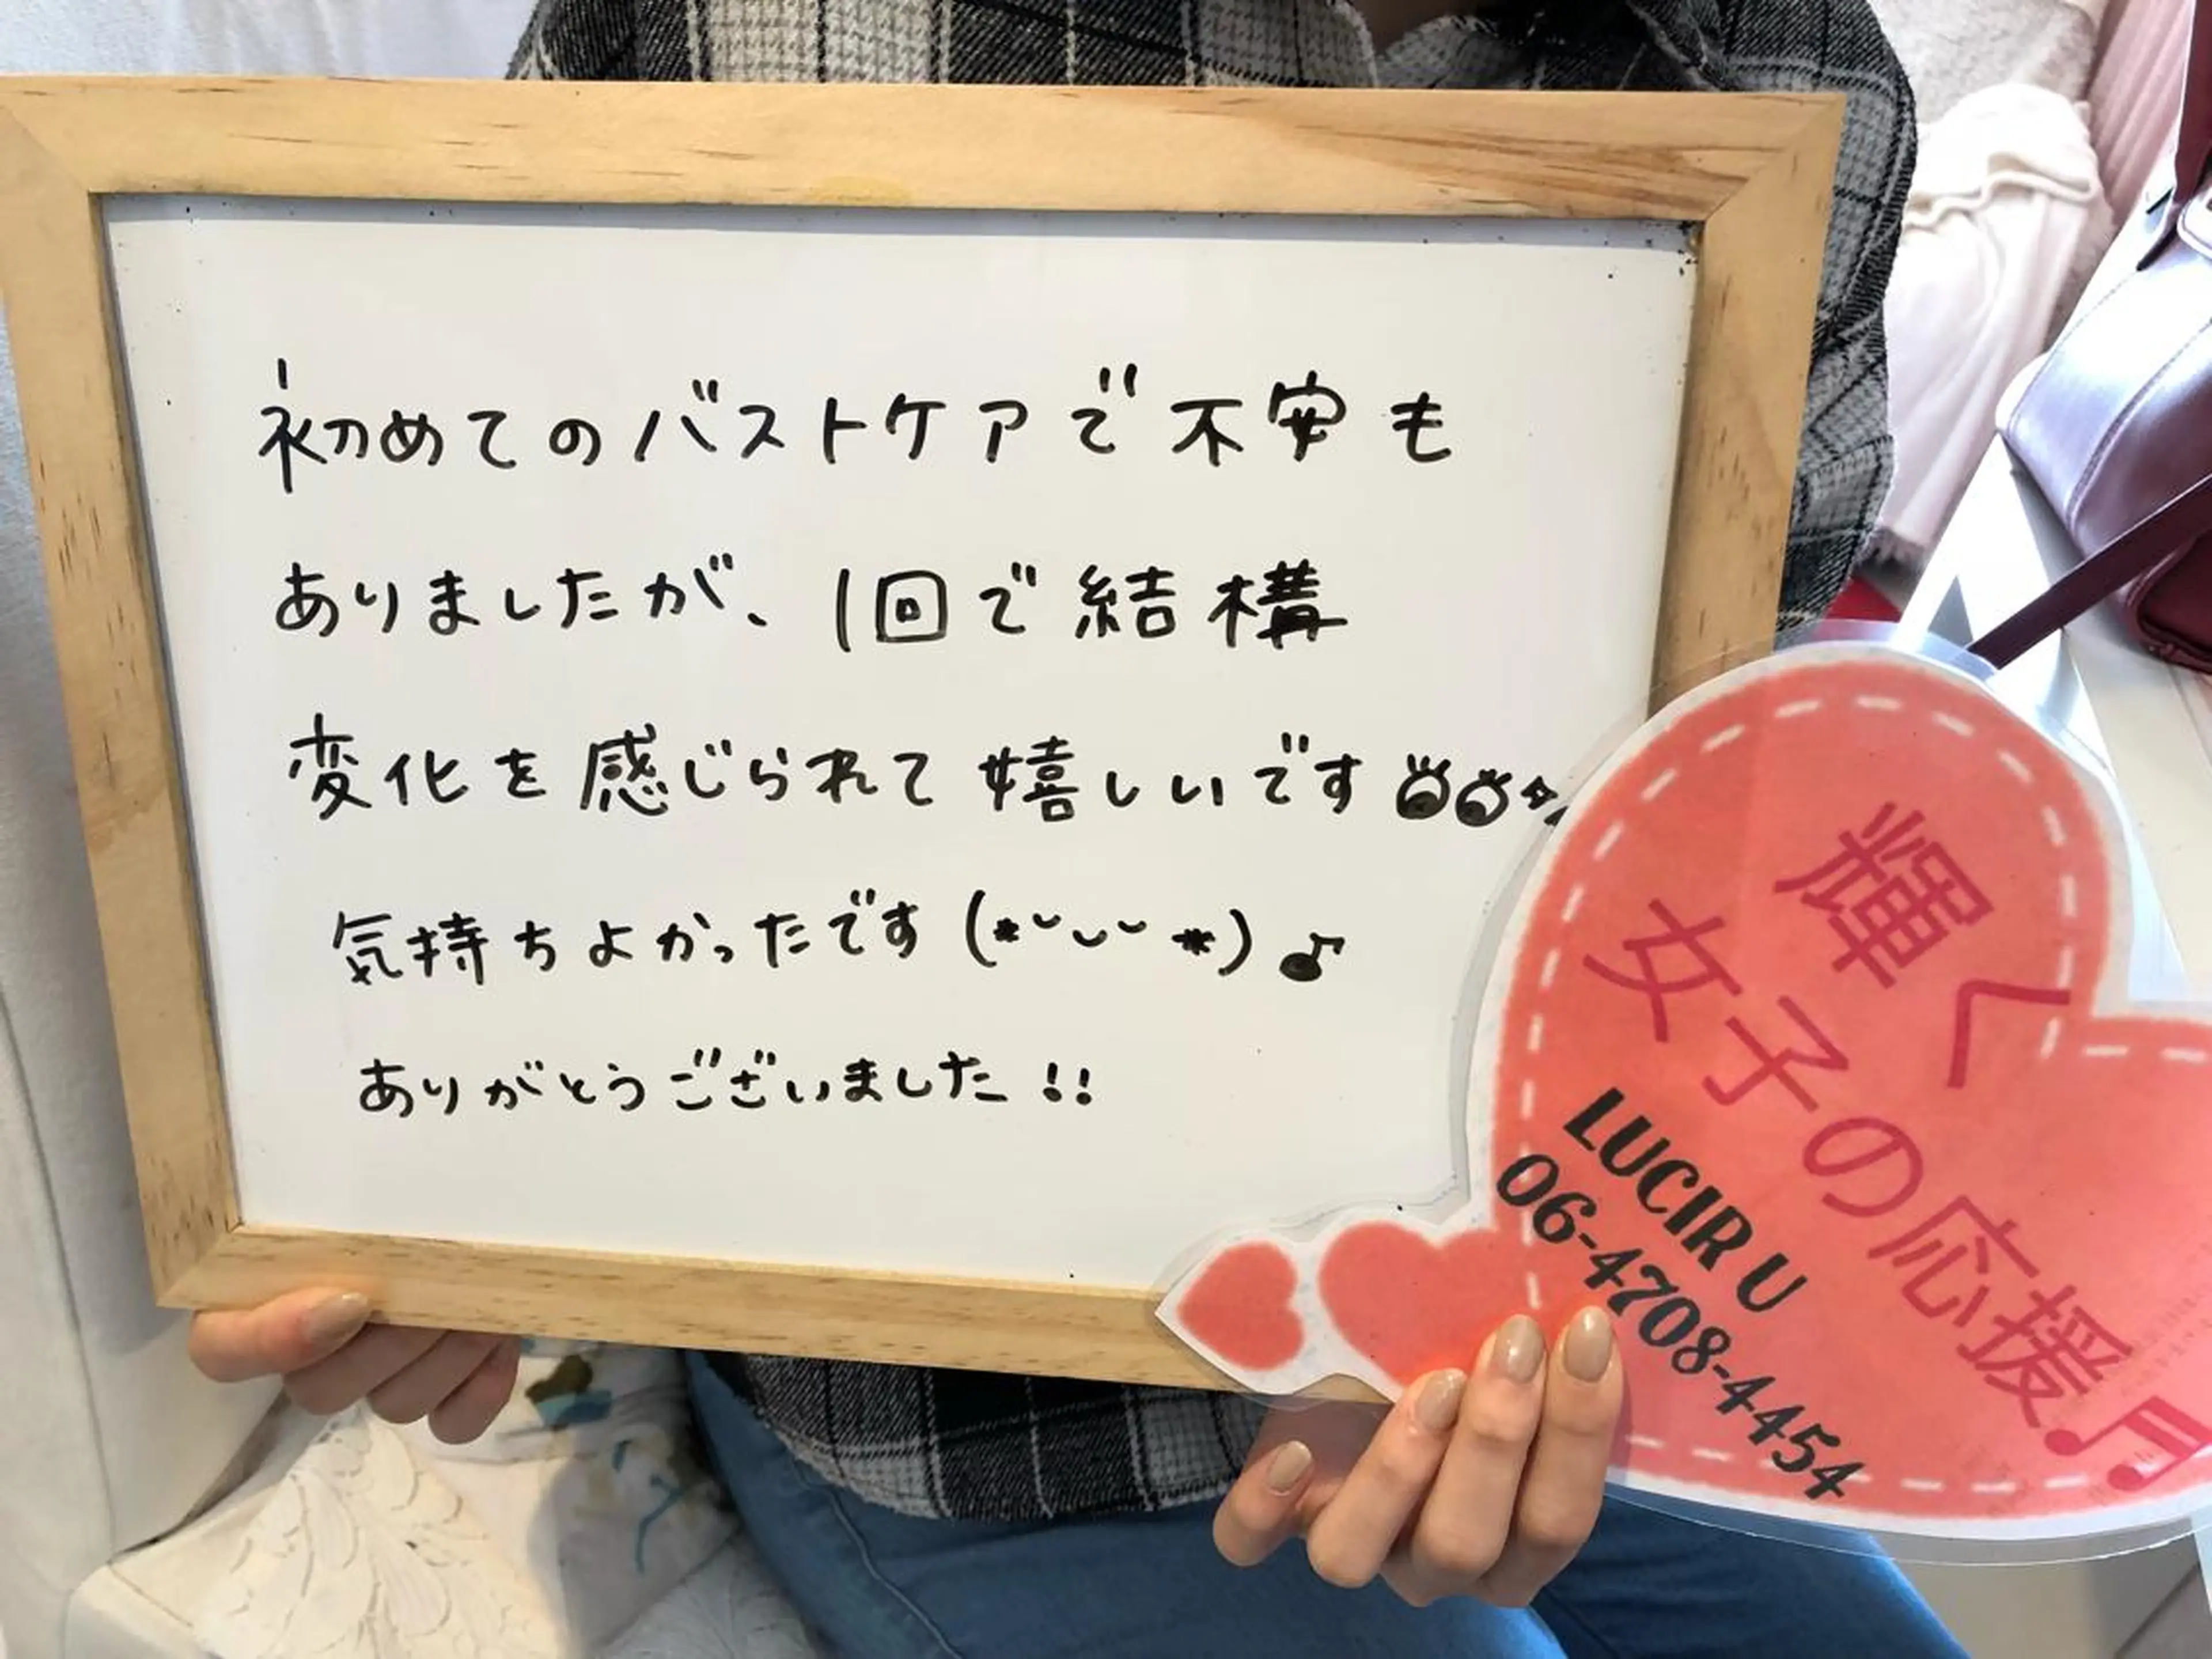 初めてのバストケアで不安も
ありましたが、1回で結構
変化を感じられて嬉しいです
気持ちよかったです(*˘⌣˘*)♪
ありがとうございました!!
輝く
女子の応援♬
LUCIR U
06-4708-4454